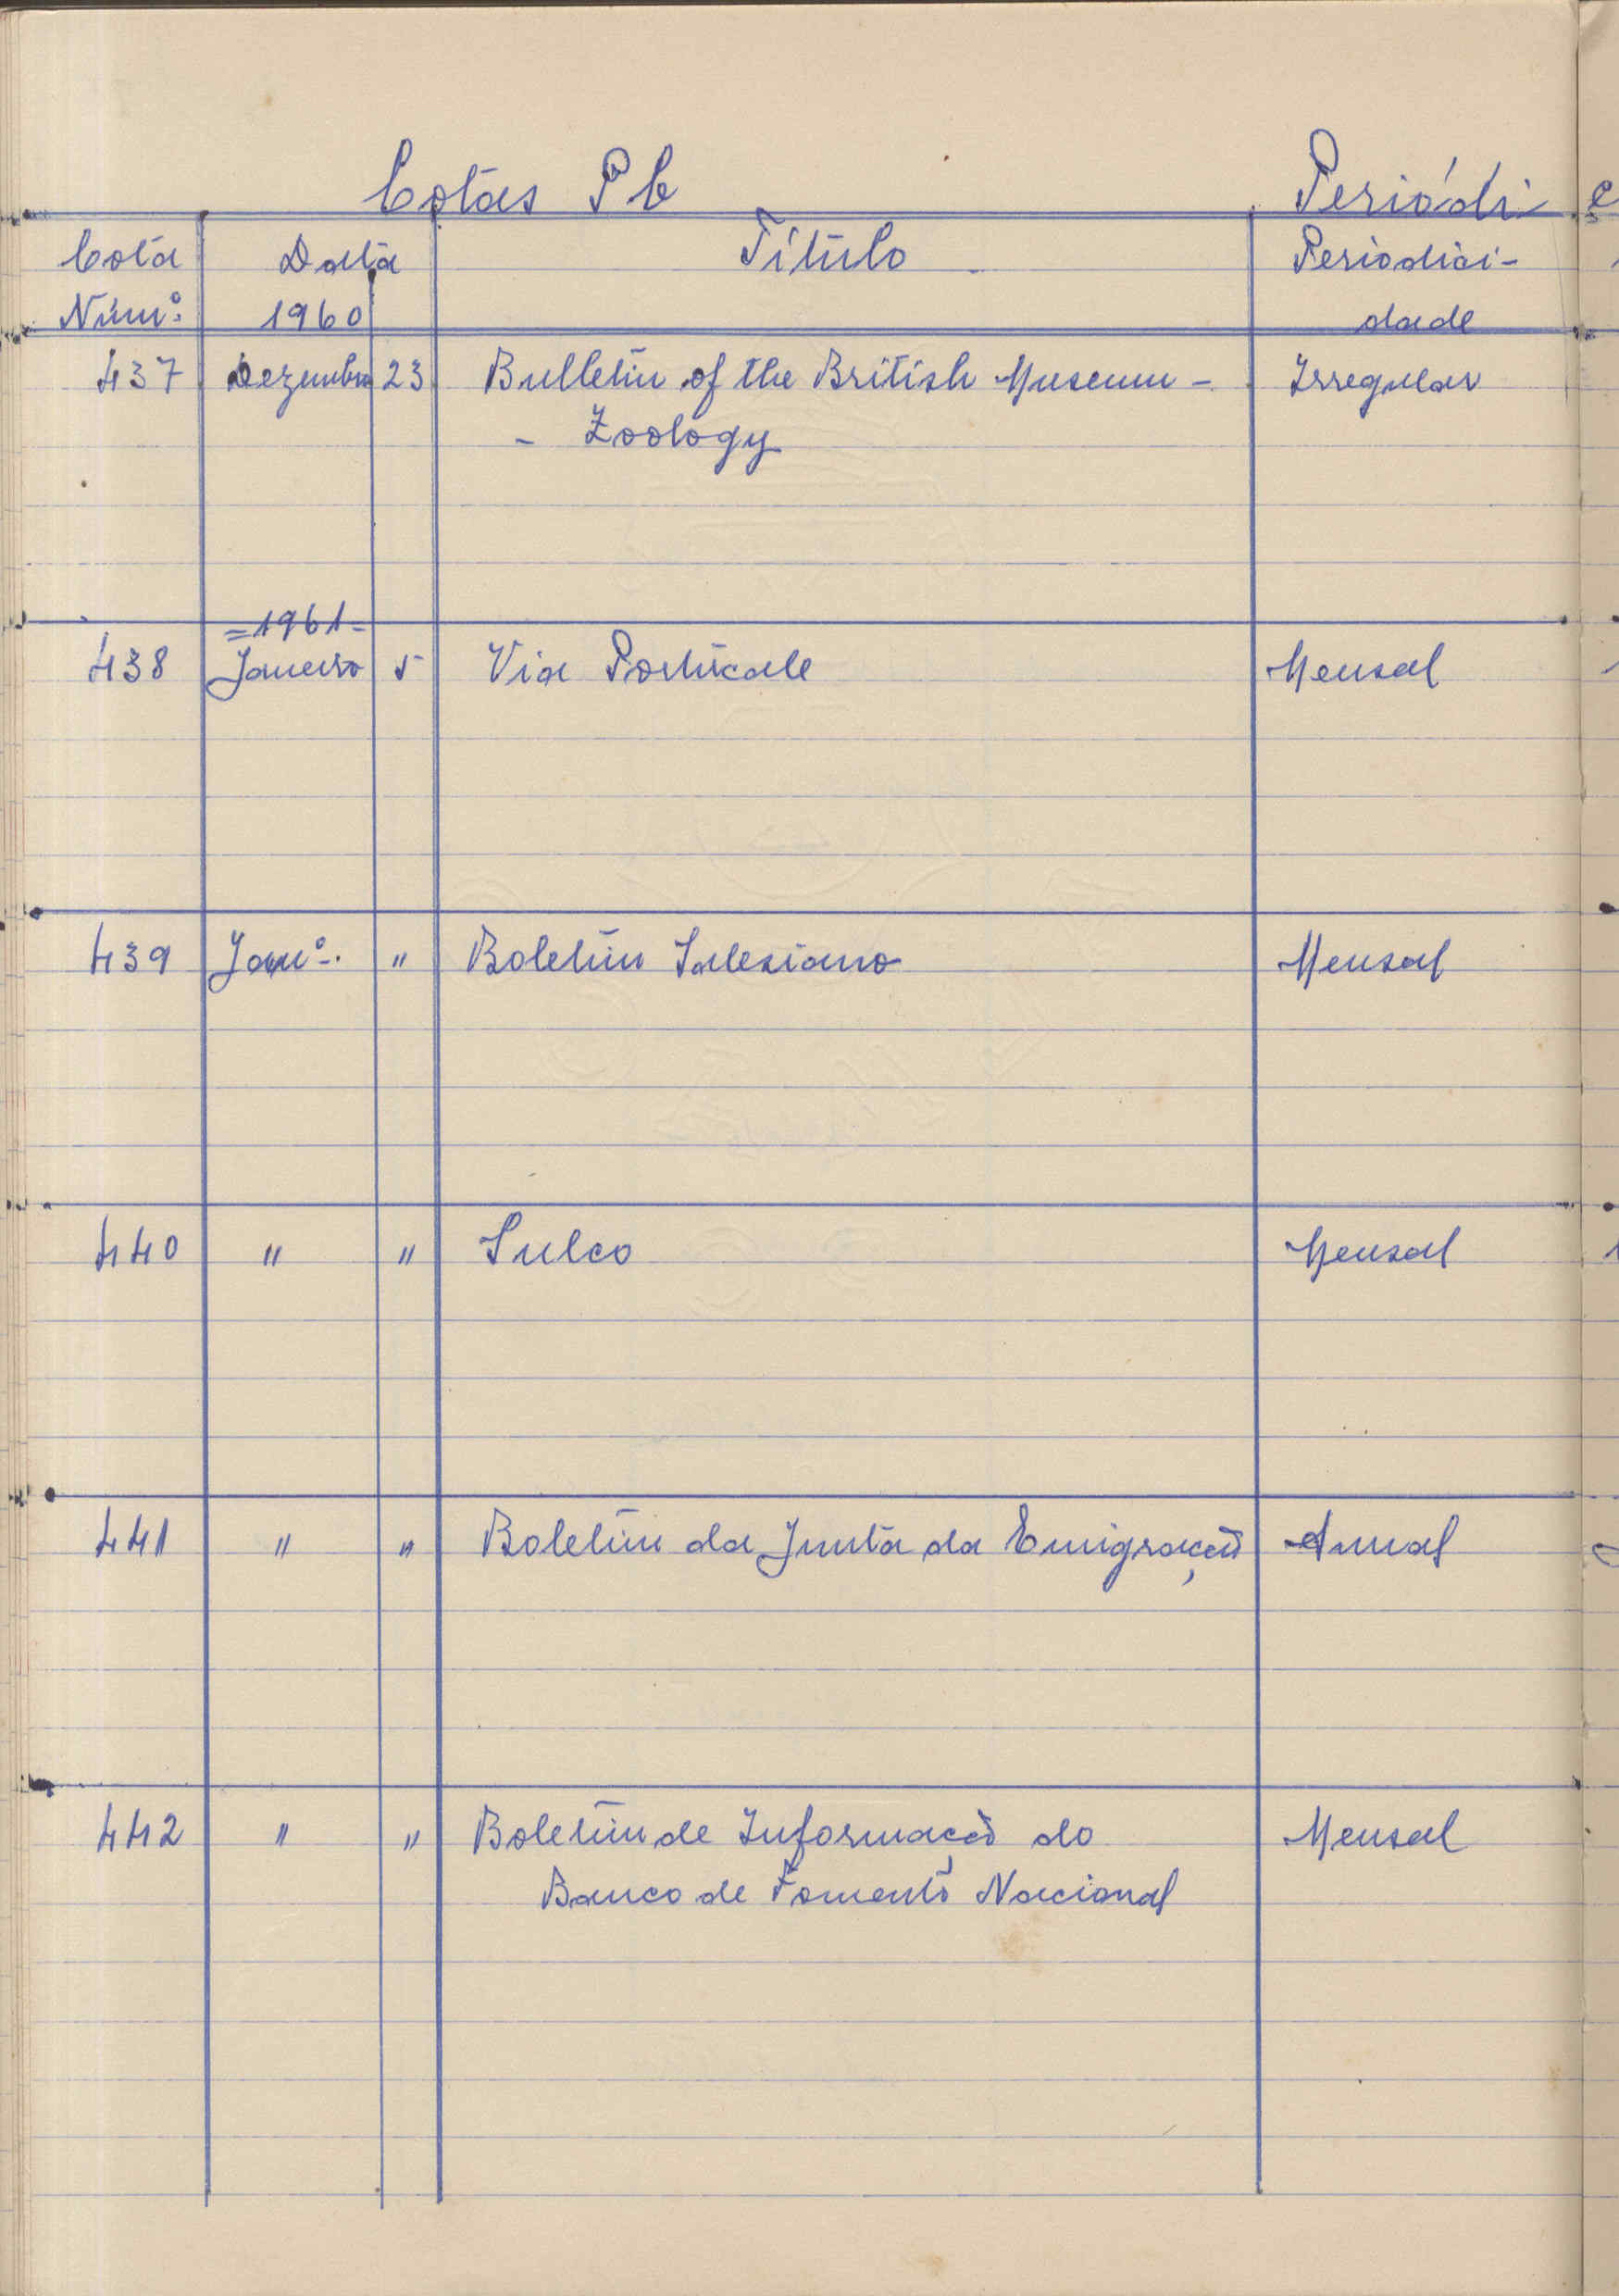 Cotas Pb Periódi c
Cota Data Título Periodici-
Núm.º 1960 dade
437 Dezembro 23 Bulletin of the British Museum - Irregular
- Zoology
= 1961 -
438 Janeiro 5 Via Portucale Mensal
439 Jan.º " Boletim Salesiano Mensal
440 " " Sulco Mensal
441 " " Boletim da Junta da Emigração Anual
442 " " Boletim de Informação do Mensal
Banco de Fomento Nacional